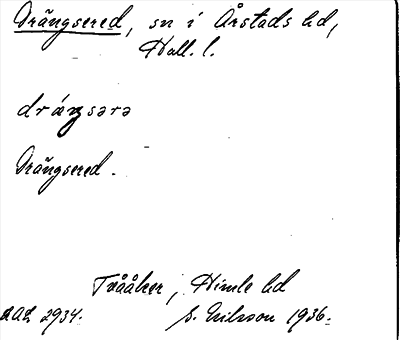 Drängsered, sn i Årstads hd,
Hall. l.
drä́ŋsərə
Drängsered.
Tvååker, Himle hd
AAL 2934. S. Erikson 1936.